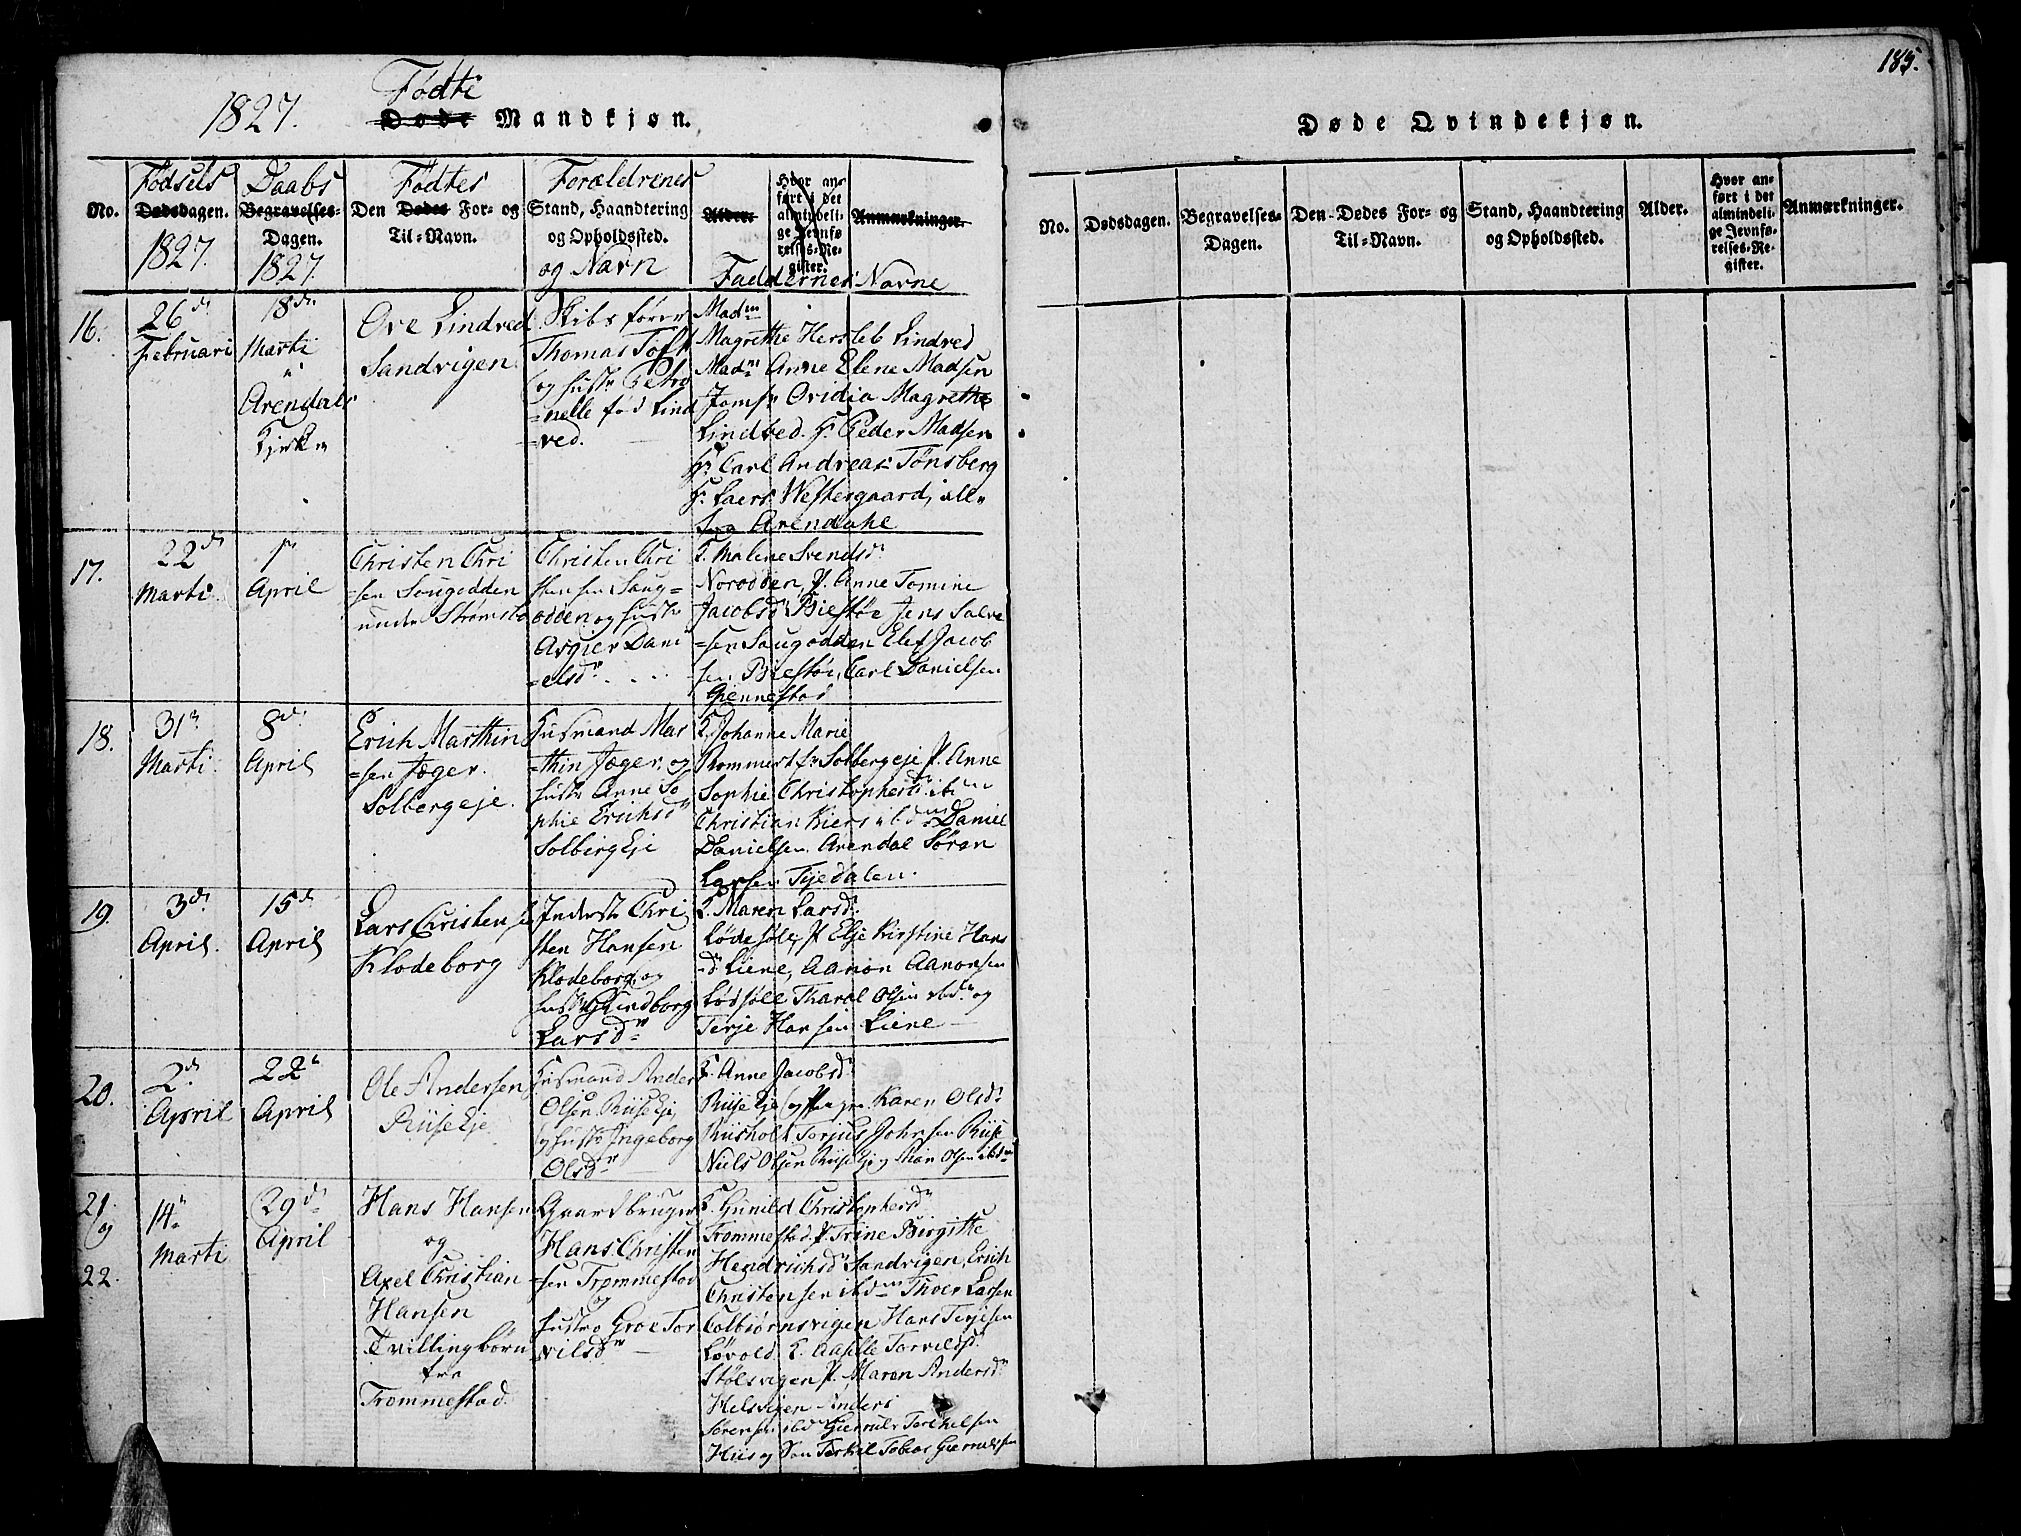 185.
1827.
Fødte
Døde Mandkjøn.
No.
Fødsels
Dødsdagen.
1827.
Daabs
Begravelses-
Dagen.
1827
Fødtes
Den Dødes For- og
Til-Navn.
Forældrenes
Stand, Haandtering
og Opholdssted.
og Navn
Alder.
Hvor an-
ført i det
almindeli-
ge Jevnfø-
relses-Re-
gister.
Anmærkninger.
Faddernes Navne
16.
26de
Februari
18de
Marti
i
Arendals
Kirke
Ove Lindved
Sandvigen
Skibsfører
Thomas Toft
og hustr Petro
=nelle fød Lind
=ved.
Madm
Magrethe Hersleb Lindved
Madm Anne Elene Madsen
Jomfr Ovidia Magrethe
Lindved. Hr Peder Madsen
Hr. Carl Andreas Tønsberg
Hr. Laers Westergaard, alle
fra Arendahl
17.
22de
Marti.
1
April
Christen Chri
sen Saugodden
under Strømsbo
Christen Chri
stensen Saug=
odden og hustr
Asgier Dani
=elsdr
F. Malene Svendsdr
Norodden P. Anne Tomine
Jacobsdr Biestøe Jens Salve
=sen Saugodden Elef Jacob
sen Biestøe, Carl Danielsen
Giennestad
18.
31te
Marti.
8de
April
Erich Marthin
=sen Jæger.
Solbergeje.
Husmand Mar
=thin Jæger og
hustr Anne So
phie Erichsdr
Solberg Eje
F. Johanne Marie
Rommert fr Solbergeje P. Anne
Sophie Christophersdr ibdm
Christian Kiers ibdm Daniel
Danielsen Arendal Søren
Larsen Tyedalen.
19.
3de
April.
15de
April
Lars Christense
Klodeborg
Inderst Chri
sten Hansen
Klodeborg og
hustr Lindborg
Larsdr
F. Maren Larsdr
Lødesøle, P Elje Kirstine Hans
=dr Liene, Aanon Aanonsen
Lødsøle Tharal Olsen ibdm og
Terje Hansen Liene
20.
2de
April
22de
April
Ole Andersen
Riise Eje
Husmand Anders
Olsen Riise Eje
og hustr Ingeborg
Olsdr
F. Anne Jacobsdr
Riise Eje og Karen Olsdr
Riisholt Torjus Johnsen Riise
Niels Olsen Riise Eje og Olsen ibdm
21.
og
22.
14de
Marti
29de
April
Hans Hansen
og
Axel Christian
Hansen
Tvillingbørn
fra
Trommestad.
Gaardbruger
Hans Christen
=sen Trommestad
og
hustro Groe Tor
vilsdr
F. Gunild Christophersdr
Trommestad P. Trine Birgitte
Hendrichsdr Sandvigen, Erich
Christensen ibdm Thoer Larsen
Colbiørnsvigen Hans Terjesen
Løvold. F. Aaselle Torvildsdr
Stølsvigen P. Maren Andersdr
Helsvigen Anders
Sørensen ibd Giermulv Terchelsen
Hiis og Søn Terkil Tobias Giermulsen
Døde Qvindekjøn.
No.
Dødsdagen.
Begravelses-
Dagen.
Den Dødes For- og
Til-Navn.
Stand, Haandtering
og Opholdssted.
Alder.
Hvor an-
ført i det
almindeli-
ge Jevnfø-
relses-Re-
gister.
Anmærkninger.